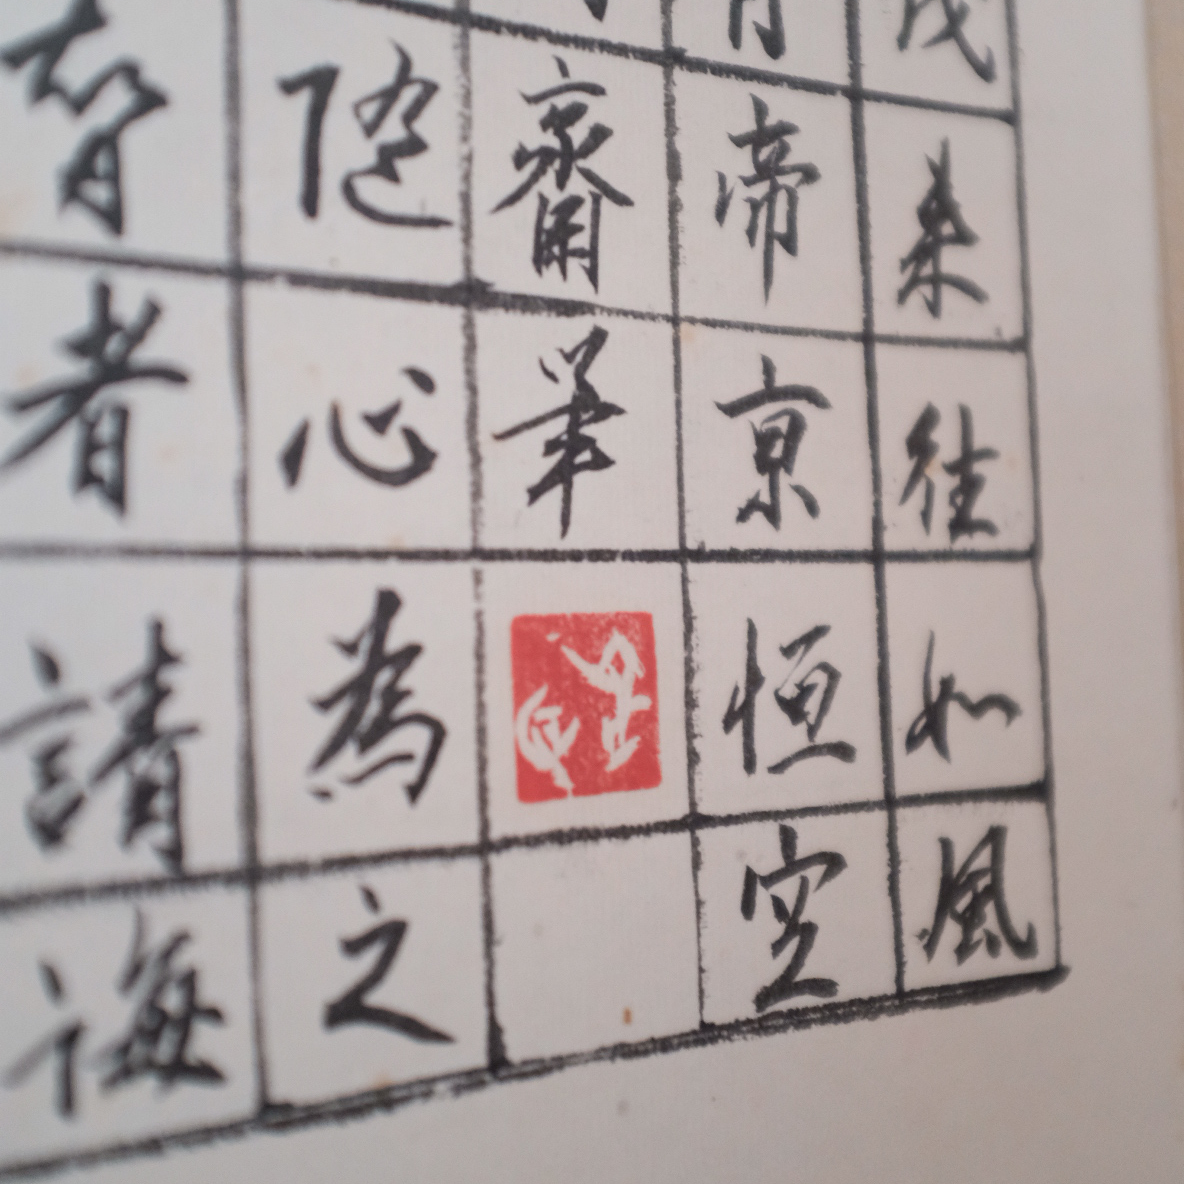 来往如風
帝京恒空
齋筆
隨心為之
者請誨